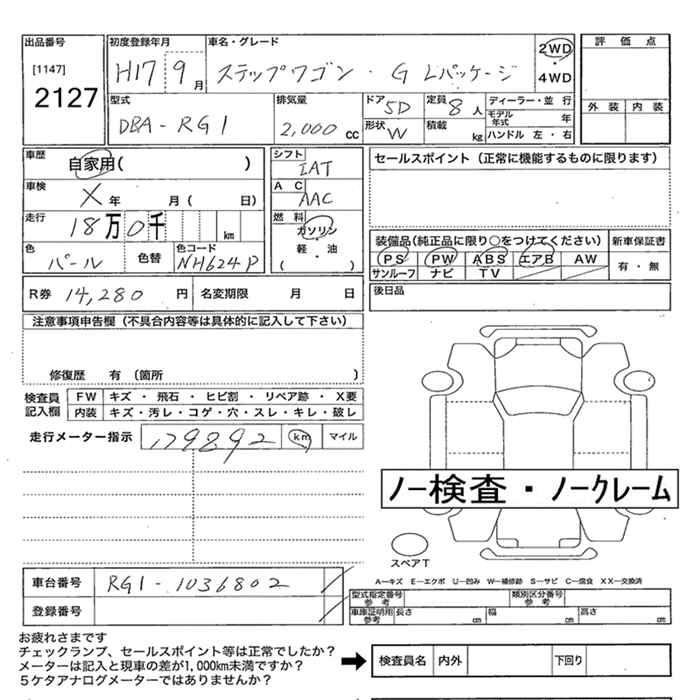 出品番号 初度登録年月 車名・グレード
[1147]
2127
H17 9 月 ステップワゴン ・ G Lパッケージ 2WD ・ 4WD
評価点
外装 内装
型式 排気量 ドア 5D 定員 8 人 ディーラー・並行
DBA-RG1 2,000 cc 形状 W 積載 kg モデル年式 年
ハンドル 左・右
車歴 自家用( )
シフト IAT
セールスポイント(正常に機能するものに限ります)
車検 X 年 月( 日)
AC AAC
走行 18万0千 km
燃料 ガソリン ・ 軽・油 ( )
色 パール 色替 色コード NH624P
装備品(純正品に限り○をつけてください) 新車保証書
PS PW ABS エアB AW 有・無
サンルーフ ナビ TV
R券 14,280 円 名変期限 月 日
後日品
注意事項申告欄(不具合内容等は具体的に記入して下さい)
修復歴 有(箇所 )
検査員記入欄 FW キズ・飛石・ヒビ割・リペア跡・X要
内装 キズ・汚レ・コゲ・穴・スレ・キレ・破レ
走行メーター指示 179892 km マイル
ノー検査・ノークレーム
スペアT
A—キズ E—エクボ U—凹み W—補修跡 S—サビ C—腐食 XX—交換済
車台番号 RG1-1036802
型式指定番号 参考 類別区分番号 参考
登録番号
車庫証明用 参考 長さ cm 幅 cm 高さ cm
お疲れさまです
チェックランプ、セールスポイント等は正常でしたか?
メーターは記入と現車の差が1,000km未満ですか?
5ケタアナログメーターではありませんか?
検査員名 内外 下回り